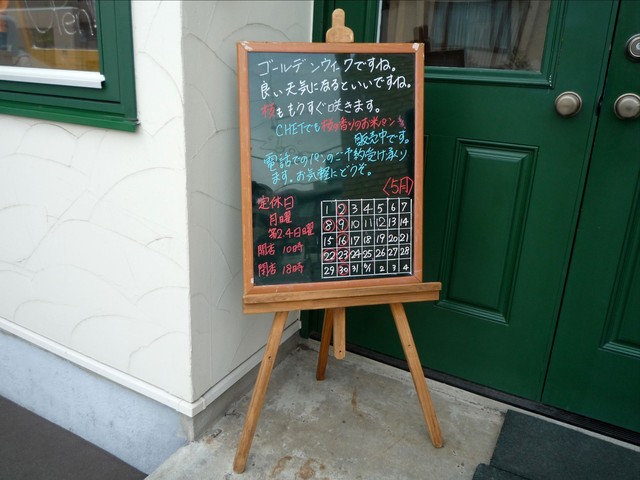 ゴールデンウィークですね。
良い天気になるといいですね。
桜ももうすぐ咲きます。
CHETでも桜の香りのお米パンを
販売中です。
電話でのパンのご予約受け承り
ます。お気軽にどうぞ。
〈5月〉
定休日
月曜
第2.4日曜
開店 10時
閉店 18時
1 2 3 4 5 6 7
8 9 10 11 12 13 14
15 16 17 18 19 20 21
22 23 24 25 26 27 28
29 30 31 6/1 2 3 4